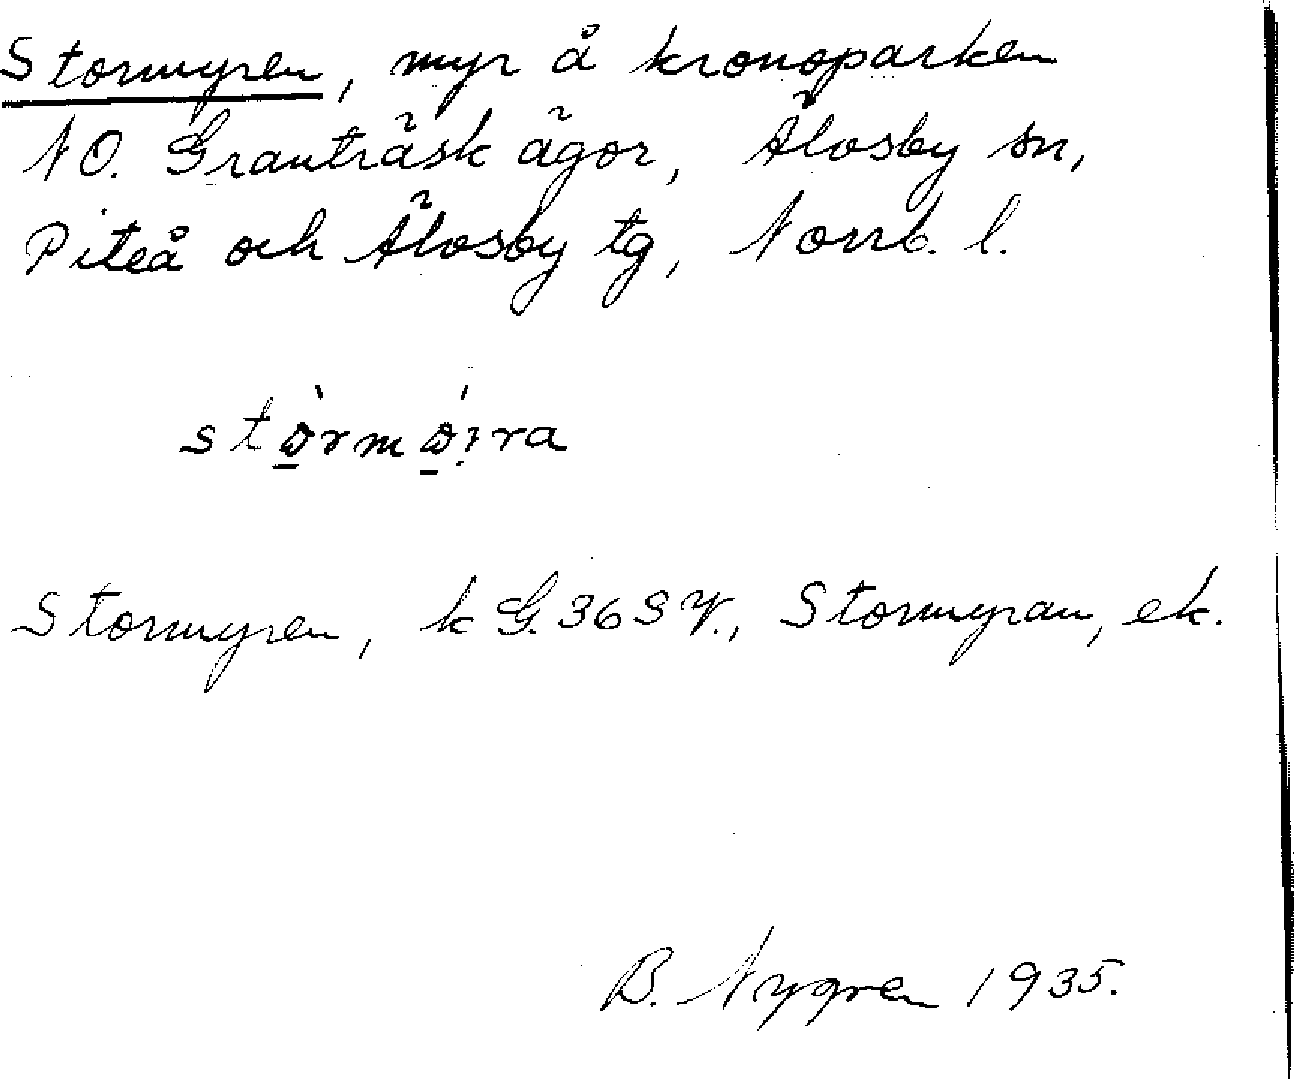 Stormyren, myr å kronoparken
NO. Granträsk ägor, Älvsby sn,
Piteå och Älvsby tg, Norrb. l.
Stormyren, k G. 36 S V., Stormyran, ek.
B. Nygren 1935.